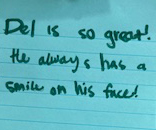 Del is so great!
He always has a
smile on his face!